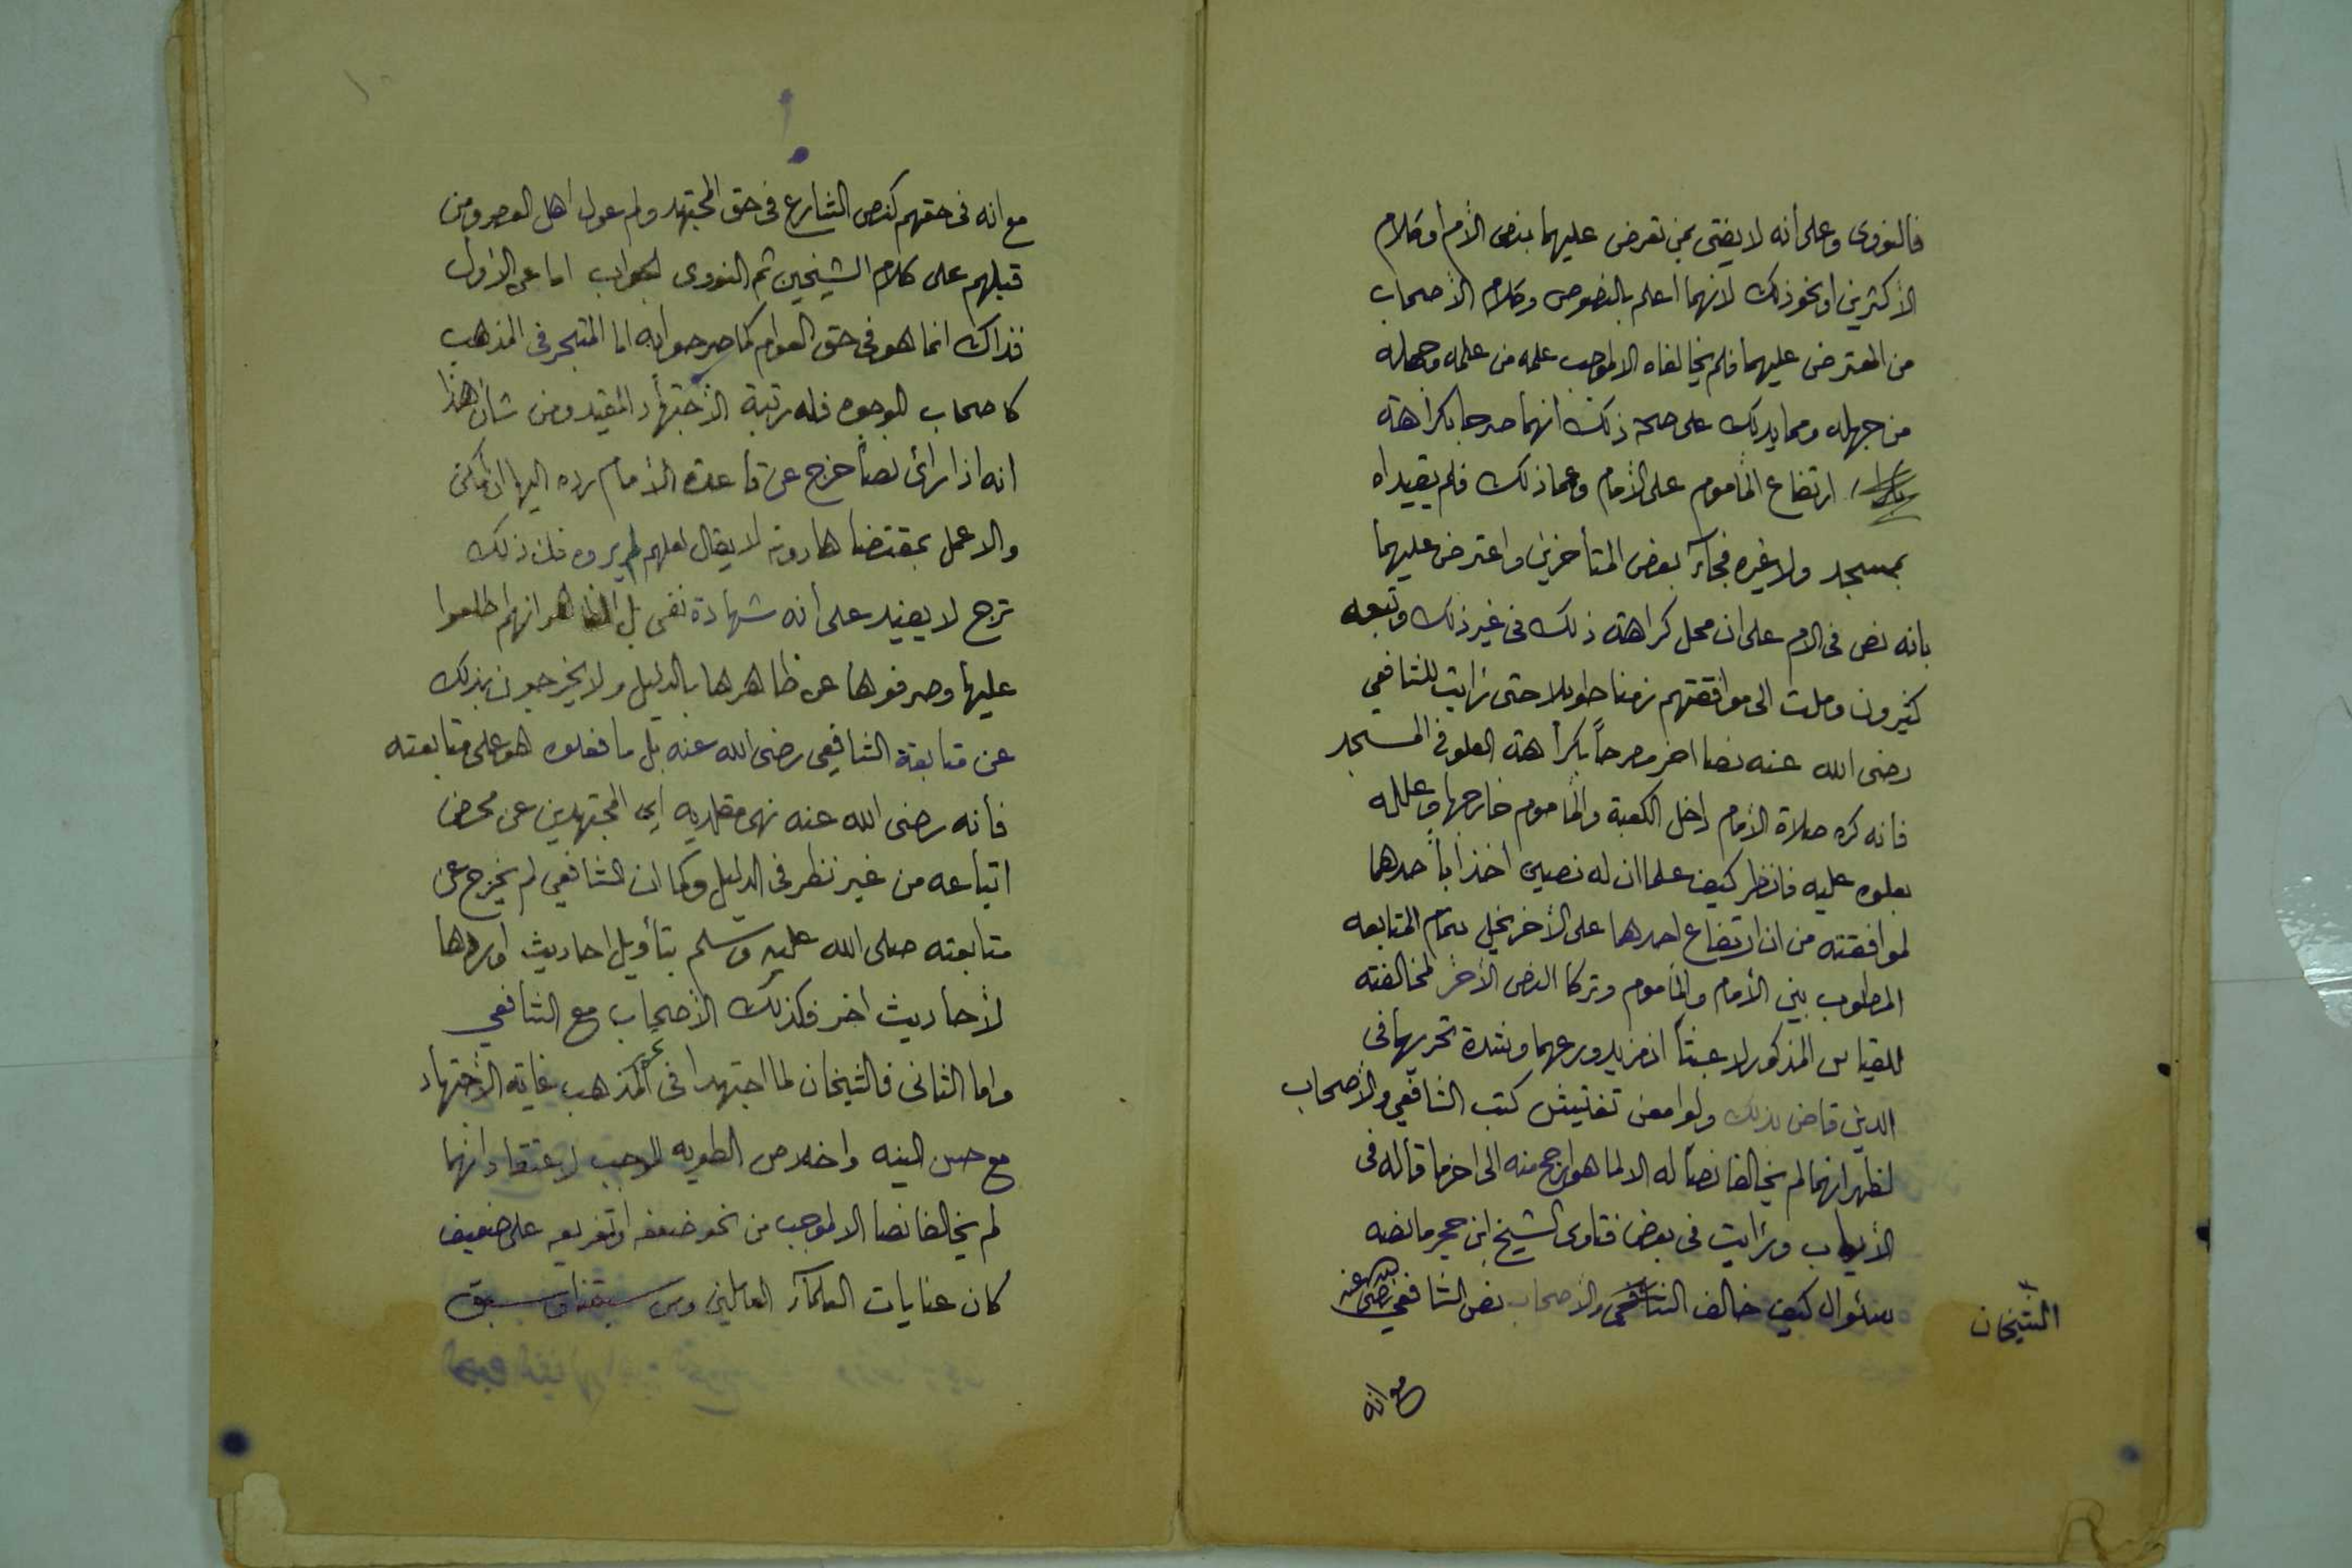 فالنووى وعلى أنه لا يفتى بمن تعرض عليهما بنص الأم أو كلام
الأكثرين او نحو ذلك لانهما أعلم بالنصوص وكلام الأصحاب
من المعترض عليهما فلم يخالفاه الا لموجب علمه من علمه وجهله
من جهله ومما يدلك على صحة ذلك انهما صرحا بكراهة
ارتفاع المأموم على الأمام وعما ذلك فلم يقيداه
بمسجد ولا غيره فجآء بعض المتأخرين واعترض عليهما
بانه نص فى الام على ان محل كراهة ذلك فى غير ذلك وتبعه
كثيرون وملت الى موافقتهم زمنا طويلا حتى رأيت للشافعي
رضى الله عنه نصا اخر مصرحاً بكراهة العلو فى المسجد
فانه كره صلاة الأمام داخل الكعبة والمأموم خارجها وعلله
بعلوه عليه فانظر كيف علما ان له نصين اخذا بأحدهما
لموافقته من ان ارتفاع احدهما على الأخر يخل بتمام المتابعه
المطلوب بين الأمام والمأموم وتركا النص الأخر لمخالفته
للقياس المذكور لا عبثاً اذ مزيد ورعهما وشدة تحريهما فى
الدين قاض بذلك ولو امعن تفتيش كتب الشافعي والأصحاب
لظهر انهما لم يخالفا نصاً له الا لما هو ارجح منه الى اخر ما قاله فى
الأيعاب ورأيت فى بعض فتاوى الشيخ ابن حجر ما نصه
سئوال كيف خالف والأصحاب نص الشافعي رضى الله عنه
الشيخان
مع انه
مع انه فى حقهم كنص الشارع فى حق المجتهد ولم عول اهل العصر ومن
قبلهم على كلام الشيخين ثم النووى الجواب اما عن الأول
فذاك انما هو فى حق العوام كما صرحوا به اما المتبحر فى المذهب
كاصحاب الوجوه فله رتبة الأجتهاد المقيد ومن شأن هذا
انه اذا رأى نصاً خرج عن قاعدة الأمام رده اليها ان أمكن
والا عمل بمقتضاها دونه لا يقال لعلهم لم يروه فلن ذلك
ترج لا يفيد على أنه شهادة نفى بل الظاهر انهم اطلعوا
عليها وصرفوها عن ظاهرها بالدليل ولا يخرجون بذلك
عن متابعة الشافعى رضى الله عنه بل ما فعلوه هو على متابعته
فأنه رضى الله عنه نهى مقلديه اى المجتهدين عن محض
اتباعه من غير نظر فى الدليل وكما ان الشافعي لم يخرج عن
متابعته صلى الله عليه وسلم بتأويل احاديث او ردها
لأحاديث اخر فكذلك الأصحاب مع الشافعي
واما الثانى فالشيخان لما اجتهدا فى تحرير المذهب غاية الأجتهاد
مع حسن النيه واخلاص الطويه الموجب لاعتقاد انهما
لم يخالفا نصا الا لموجب من نحو ضعفه او تفريعه على ضعيف
كان عنايات العلمآء العاملين ومن سبقنا